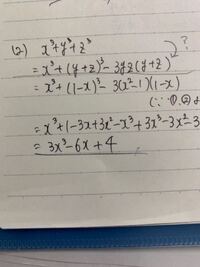 (2) x³+y³+z³ ?
= x³+(y+z)³-3yz(y+z)
= x³+(1-x)³-3(x²-1)(1-x)
(∵ ①,②よ
= x³+1-3x+3x²-x³+3x³-3x²-3
= 3x³-6x+4